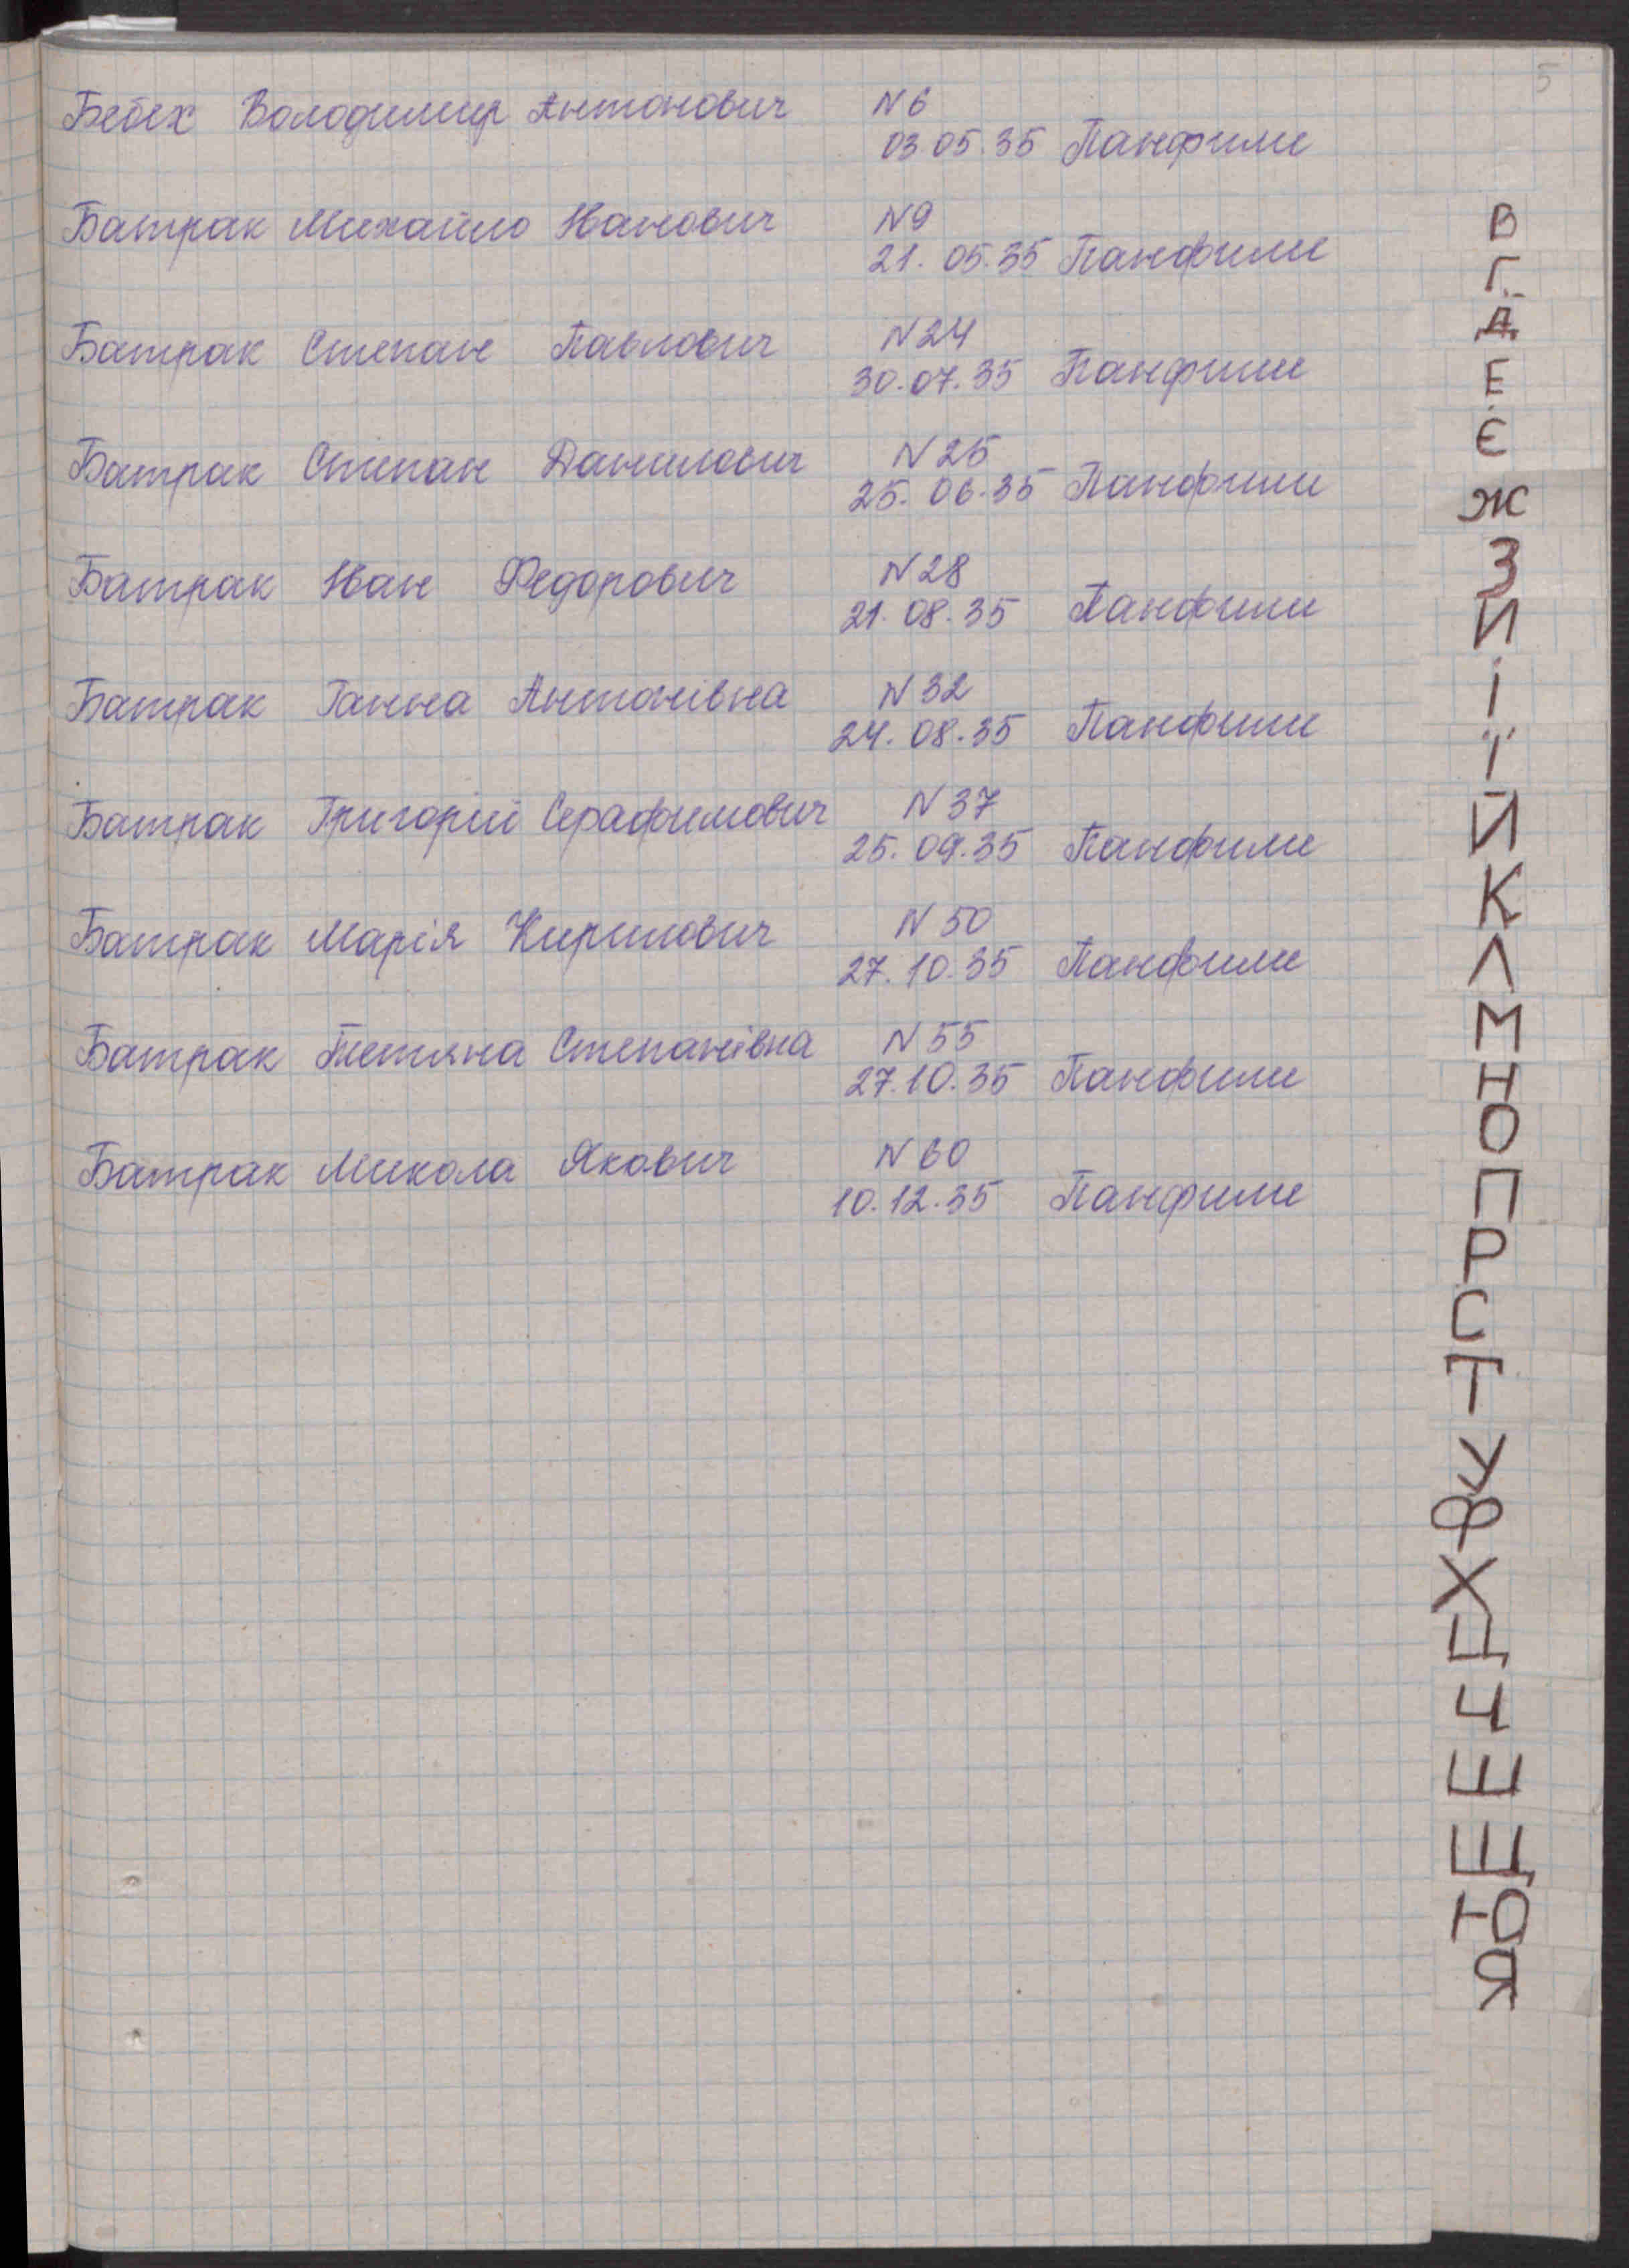 5
Бебех Володимир Антонович N 6
03.05.35 Панфили
Батрак Михайло Іванович N 9
21.05.35 Панфили
Батрак Степан Павлович N 24
30.07.35 Панфили
Батрак Степан Данилович N 25
25.06.35 Панфили
Батрак Іван Федорович N 28
21.08.35 Панфили
Батрак Ганна Антонівна N 32
24.08.35 Панфили
Батрак Григорій Серафимович N 37
25.09.35 Панфили
Батрак Марія Кирилович N 50
27.10.35 Панфили
Батрак Тетяна Степанівна N 55
27.10.35 Панфили
Батрак Микола Якович N 60
10.12.35 Панфили
В
Г
Д
Е
Є
Ж
З
И
І
Ї
Й
К
Л
М
Н
О
П
Р
С
Т
У
Ф
Х
Ц
Ч
Ш
Щ
Ю
Я